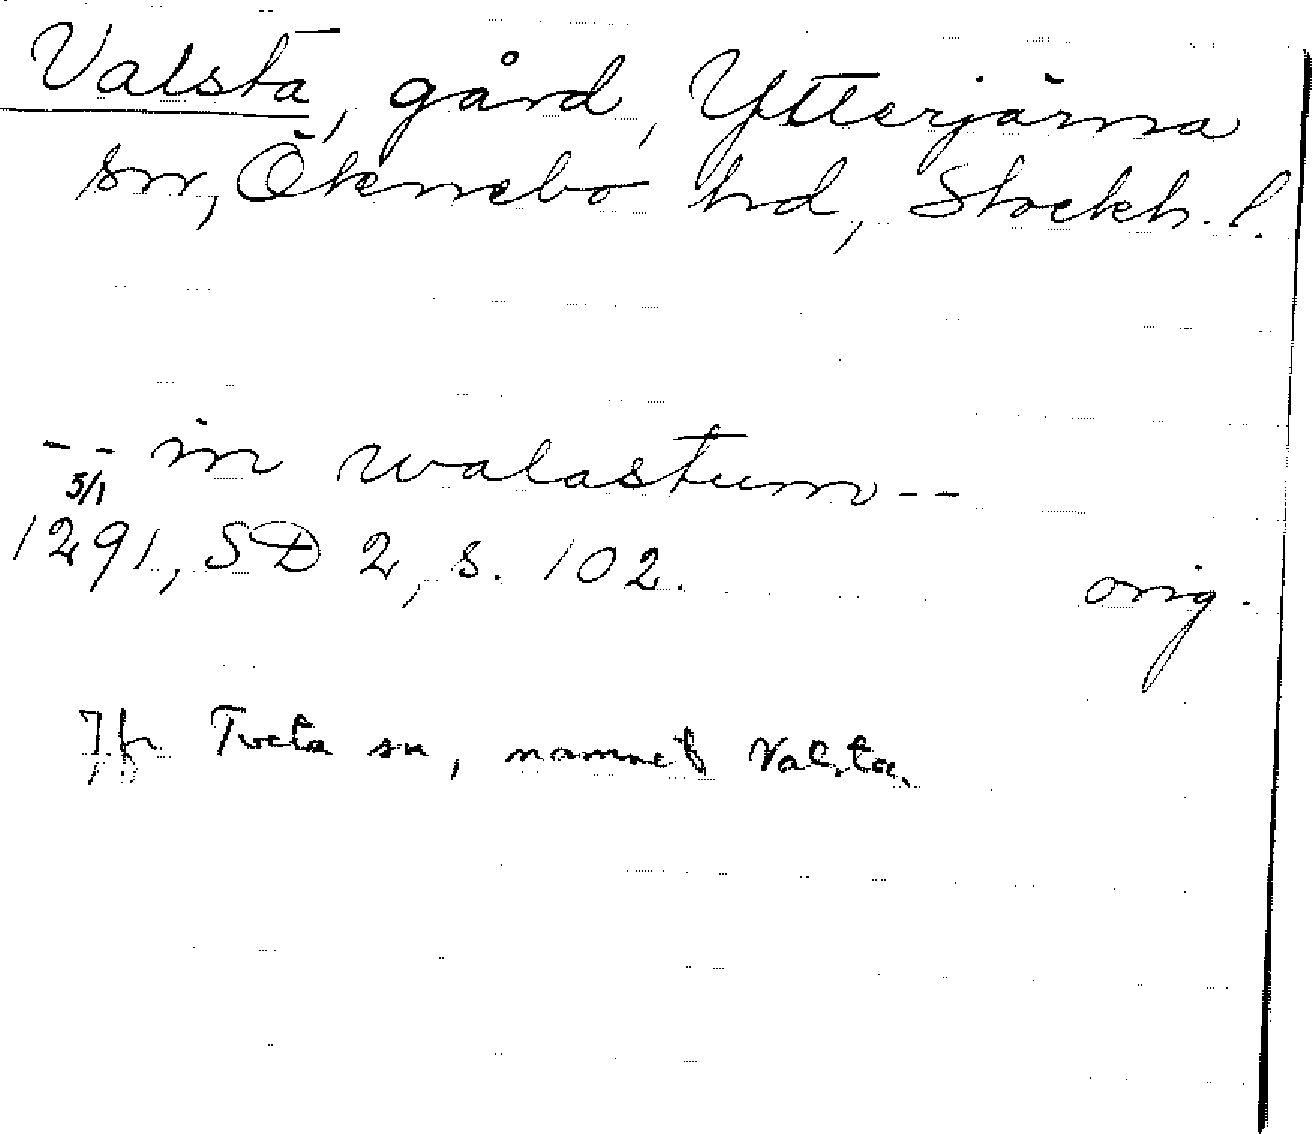 Valsta, gård, Ytterjärna
sn, Öknebo hd, Stockh. l.
-- in walastum --
5/1
1291, SD 2, s. 102.
orig.
Jfr Tveta sn, namnet Valsta.